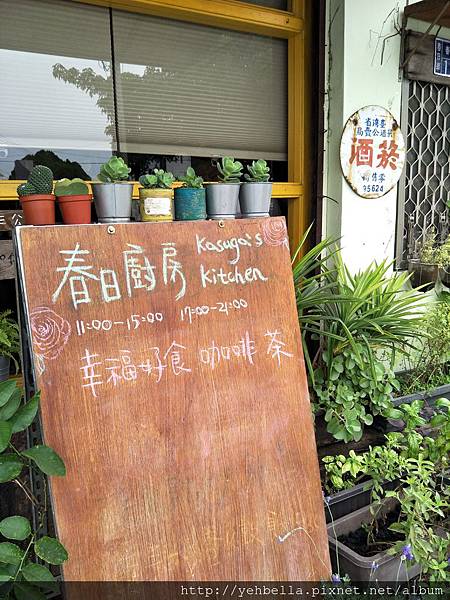 春日廚房 Kasuga's Kitchen
11:00-15:00 17:00-21:00
幸福好食 咖啡茶
臺灣省
菸酒公賣局
菸酒
零售
95624
http://yehbella.pixnet.net/album